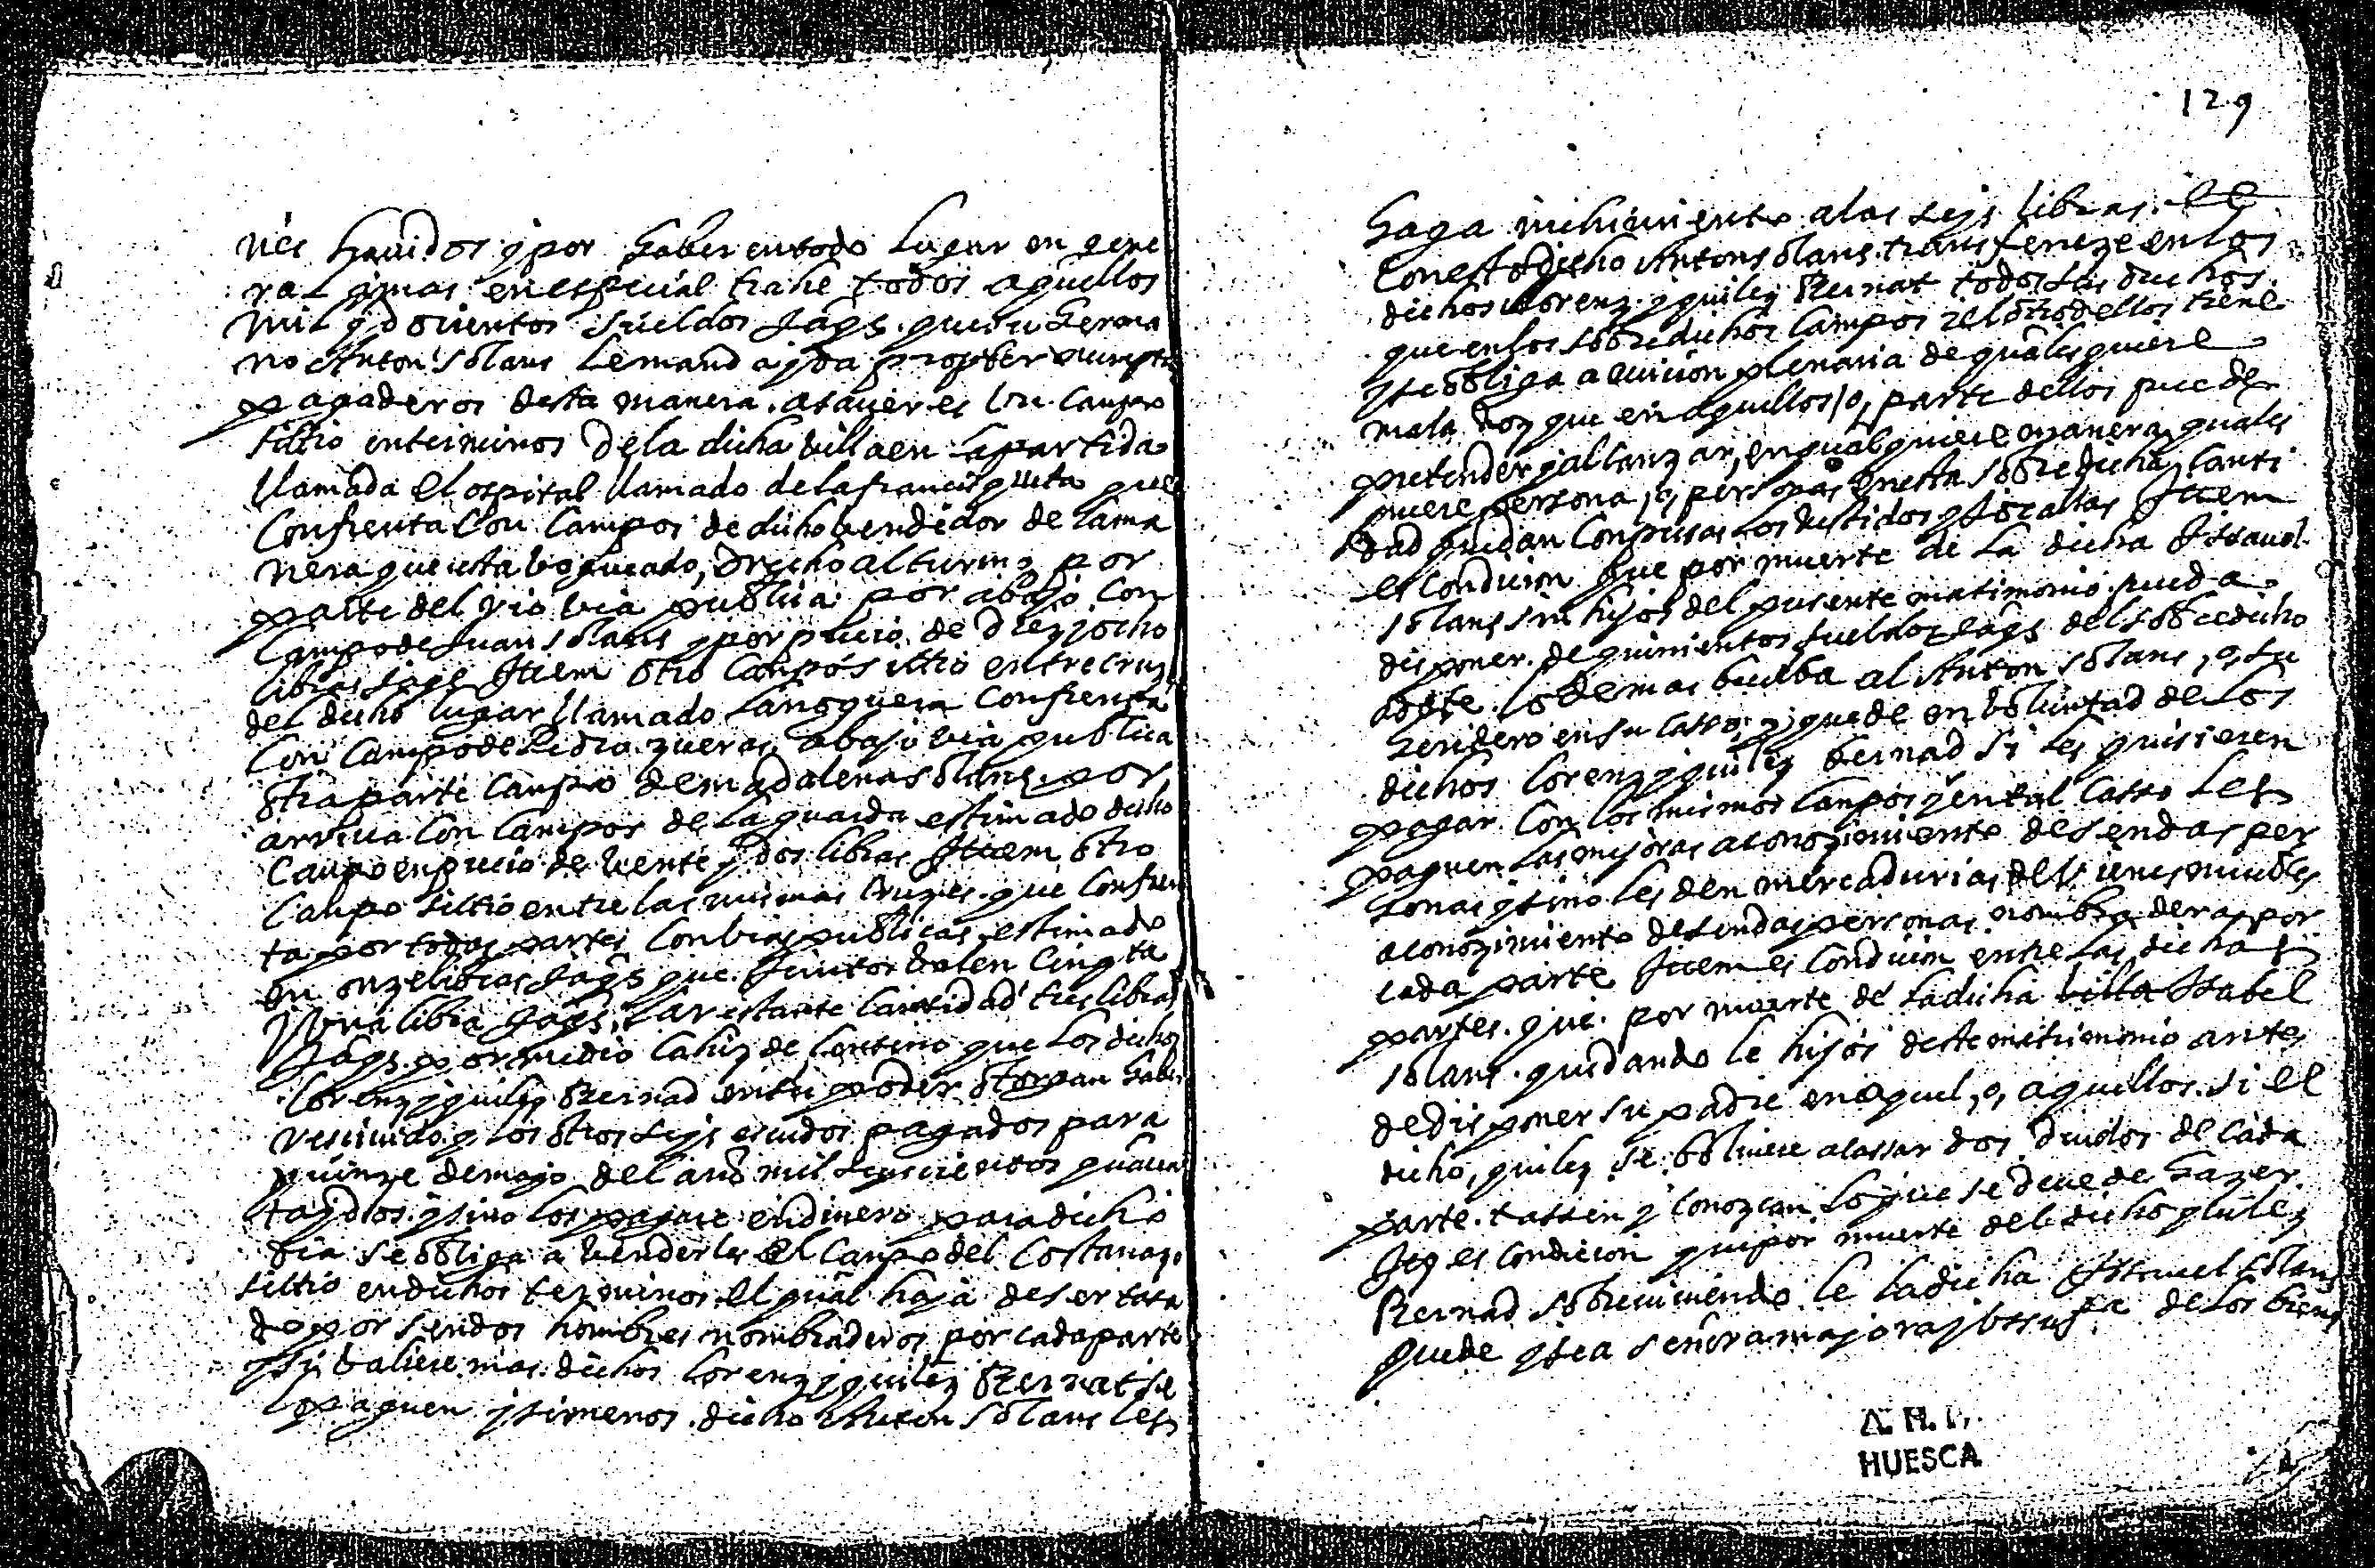 nes havidos y por haber en todo lugar en gene
ral y mas en especial trahe todos aquellos
mil y docientos sueldos Jaqs. que su herma
no Anton Solans le manda y da propter nuptias
pagaderos desta manera. asauer es Un campo
sitio en terminos de la dicha billa en la partida
llamada el ospital llamado de la francisqueta que
confrenta con campos de dicho bendedor de la ma
nera que esta bogueado, drecho al turmo por
parte del rio via publica por abajo con
campo de Juan Solans y por precio de diez y ocho
libras Jaqs Item otro campo sitio entre cruzes
del dicho lugar llamado la noguera confrenta
con campo de Pedro zueras abajo via publica
otra parte campo de madalena Solans. por
arriua con campos de la guarda estimado dicho
campo en precio de vente y dos libras Item otro
campo sitio entre las mismas cruzes. que confren
ta por todas partes con bias publicas estimado
en onze libras Jaqs que Juntos balen cinqta
y una libra Jaqs. la restante cantidad tres libras
Jaqs. por medio cahiz de centeno que los dichos
Lorenz y guilez Bernad en su poder otorgan haber
resciuido y los otros seys escudos pagados para
quinze de mayo del año mil seyscientos quaren
ta y dos. y sino los pagare en dinero para dicho
dia se obliga a benderles el campo del Costanazo
sitio en dichos terminos el qual haya de ser tasa
do por sendos hombres nombraderos por cada parte
y si baliere mas dichos Lorenz y guilez Bernat se
lo paguen y si menos. dicho Anton Solans les
129
haga inchimiento a las seys libras. el
con esto dicho Anton Solans. transfereze en los
dichos Lorenz y guilez Bernat todos los drechos
que en los sobredichos campos i el otro dellos tiene
y se obliga a euicion plenaria de qualesquiere
mala voz que en aquellos, o, parte dellos pueden
pretender y allanzar, en qualquiere manera quales
quiere persona, o, personas en esta sobredicha canti
dad quedan conpresas los bestidos y Jocallas Item
es condicion que por muerte de la dicha Issauel
Solans sin hijos del presente matrimonio pueda
disponer. de quinientos sueldos Jaqs del sobredicho
adote. lo demas buelba al Anton Solans, o, su
heridero en su casso, y quede en boluntad de los
dichos Lorenz y guilez Bernad si les quisieren
pagar con los mismos campos y en tal casso les
paguen las mijoras a conozimiento de sendas per
sonas y sino les den mercadurias de bienes muebles
a conozimiento de sendas personas nombraderas por
cada parte Item es condicion entre las dichas
partes. que. por muerte de la dicha billa Isabel
Solans. quedando le hijos deste matrimonio antes
de disponer su padre en aquel, o, aquellos. si el
dicho, guilez se boluiere a cassar dos deudos de cada
parte. tassen y conozcan lo que se deue de hazer.
Item es condicion que por muerte del dicho guilez
Bernad sobreuiuiendo le la dicha Issauel Solans
quede y sea señora mayora y ussufa de los bienes
A. H. P.
HUESCA